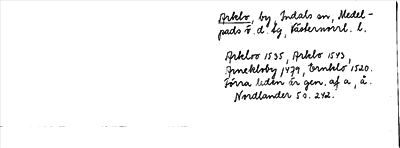 Arklo, by, Indals sn, Medel-
pads v. d. tg, Västernorrl. l.
Arkloo 1535, Arklo 1543,
Arnekloby 1479, Ernklo 1520.
Förra leden är gen. af a, å.
Nordlander 5 s. 242.